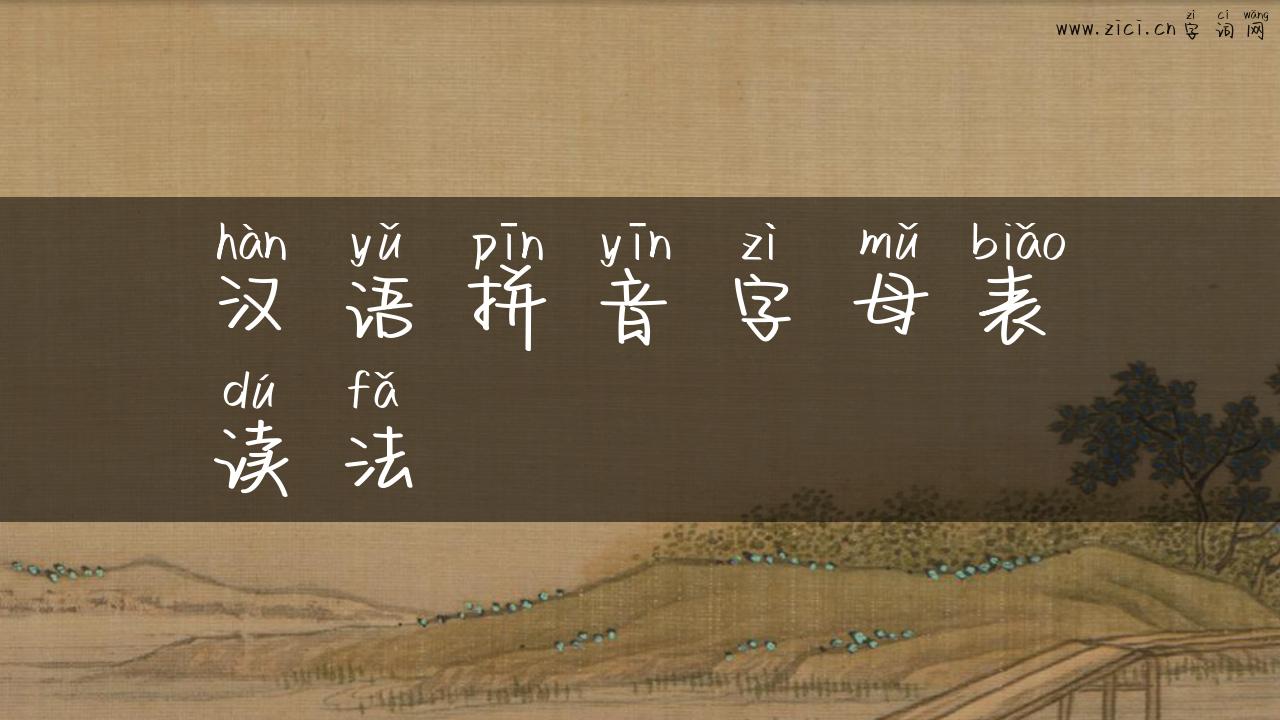 zì cí wǎng
www.zici.cn字词网
hàn yǔ pīn yīn zì mǔ biǎo
汉语拼音字母表
dú fǎ
读法